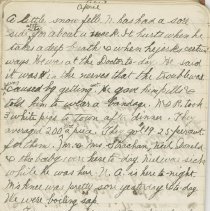 April
A little snow fell. N. has had a sore
side for about a week. It hurts when he
takes a deep breath & when he jerks certain
ways. He was at the Doctor to-day. He said
it was in the nerves that the trouble was
caused by getting. He gave him pills &
told him to wear a bandage. N & R. took
3 white pigs to town after dinner. They
averaged 200 a piece. They got 19.25 percwt
for them. Jno. & Mrs Strachan, Neil, Donald
& the baby were here to-day. Neil was sick
while he was here. N. A. is here to-night.
was pretty sore yesterday & to-day.
We were boiling sap.